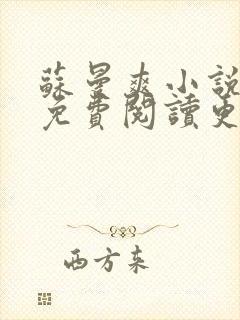 蘇曼爽小說
免費閱讀更
西方来